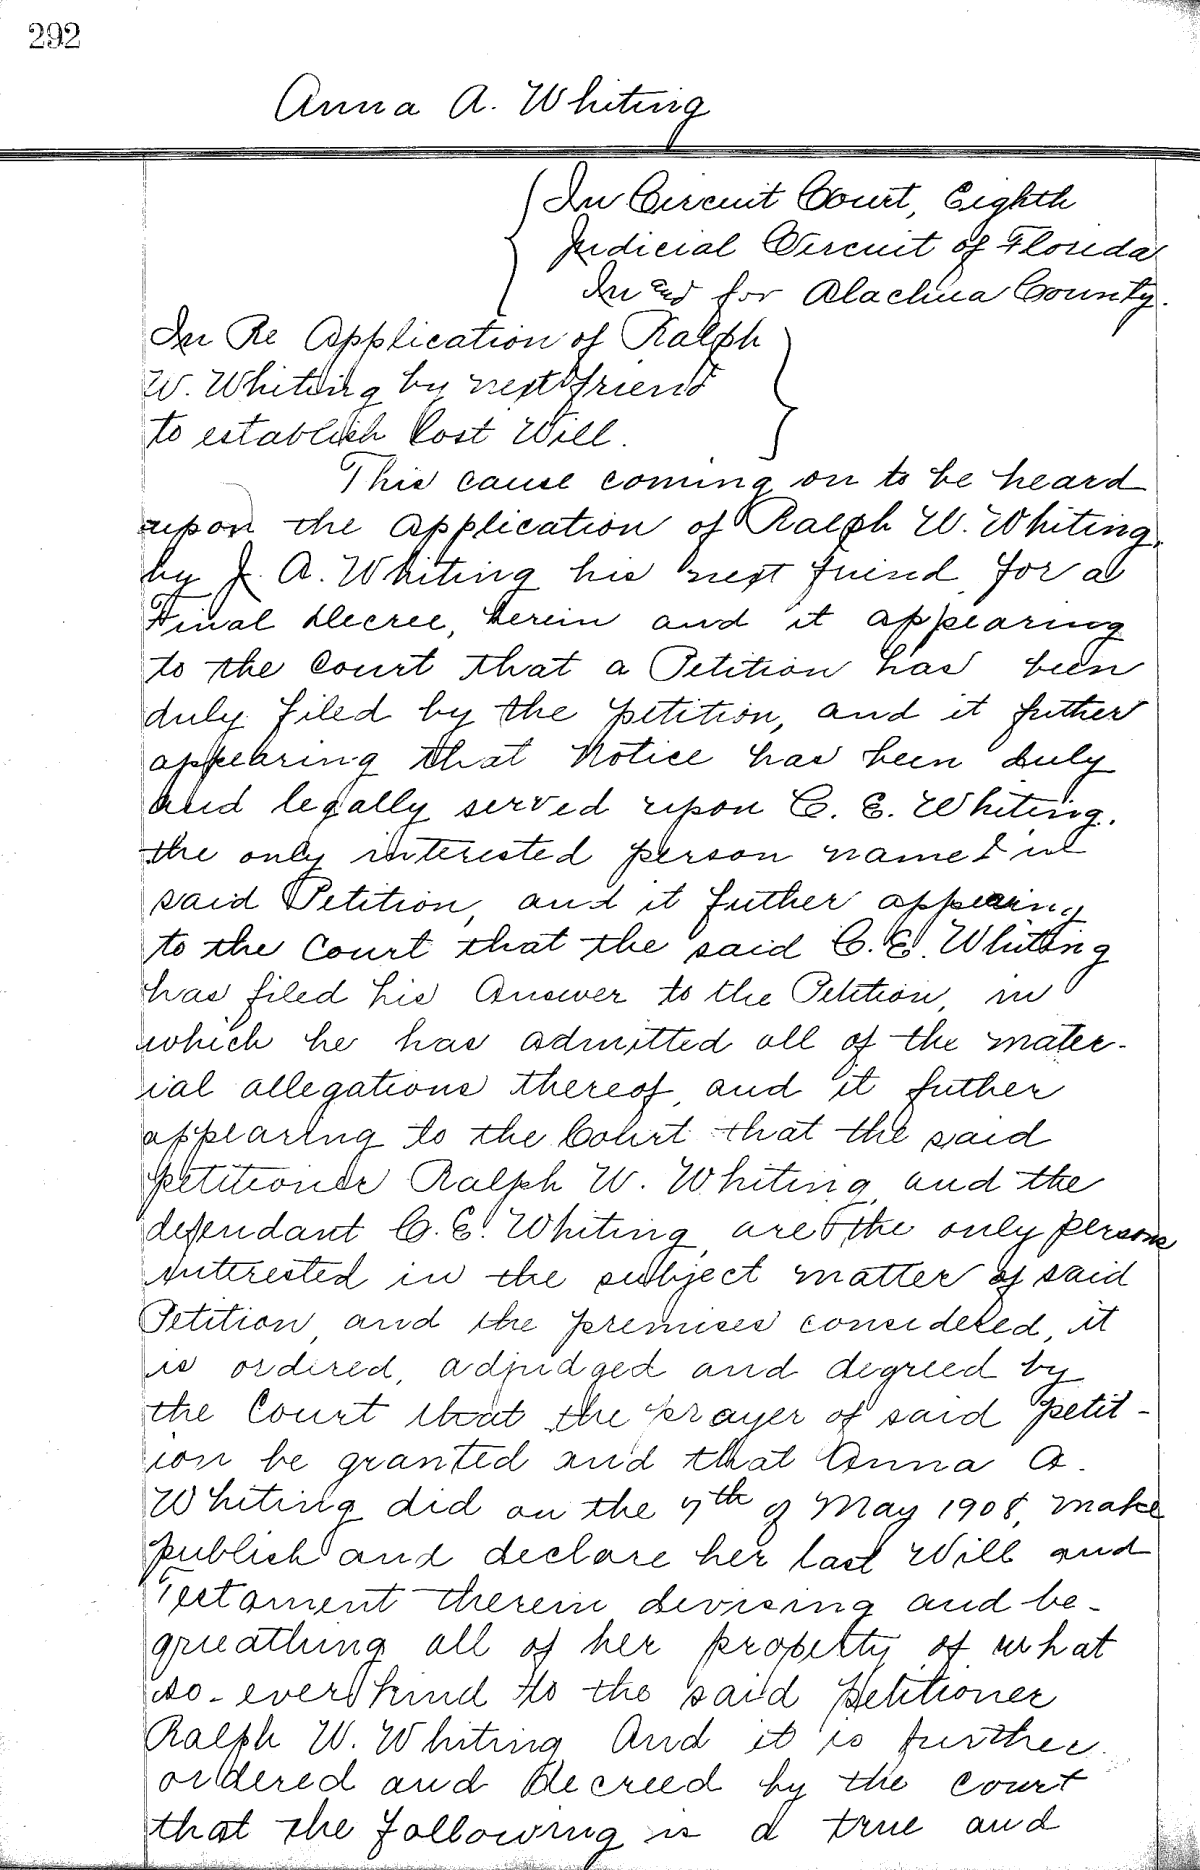 292
Anna A. Whiting
In Circuit Court, Eighth
Judicial Circuit of Florida
In and for Alachua County.
In Re Application of Ralph
W. Whiting by next friend
to establish Lost Will.
This cause coming on to be heard
upon the application of Ralph W. Whiting,
by J. A. Whiting his next friend, for a
Final Decree, herein and it appearing
to the Court that a Petition has been
duly filed by the petition, and it futher
appearing that Notice has been duly
and legally served upon C. E. Whiting.
the only interested person named in
said Petition, and it futher appearing
to the Court that the said C. E. Whiting
has filed his Answer to the Petition, in
which he has admitted all of the mater-
ial allegations thereof, and it futher
appearing to the Court that the said
petitioner Ralph W. Whiting, and the
defendant C. E. Whiting, are the only persons
interested in the subject matter of said
Petition, and the premises considered, it
is ordered, adjudged and degreed by
the Court that the prayer of said petit-
ion be granted and that Anna A.
Whiting did on the 7th of May 1908, make
publish and declare her last Will and
Testament therein devising and be-
queathing all of her property of what
so-ever kind to the said petitioner
Ralph W. Whiting And it is further
ordered and decreed by the Court
that the following is a true and